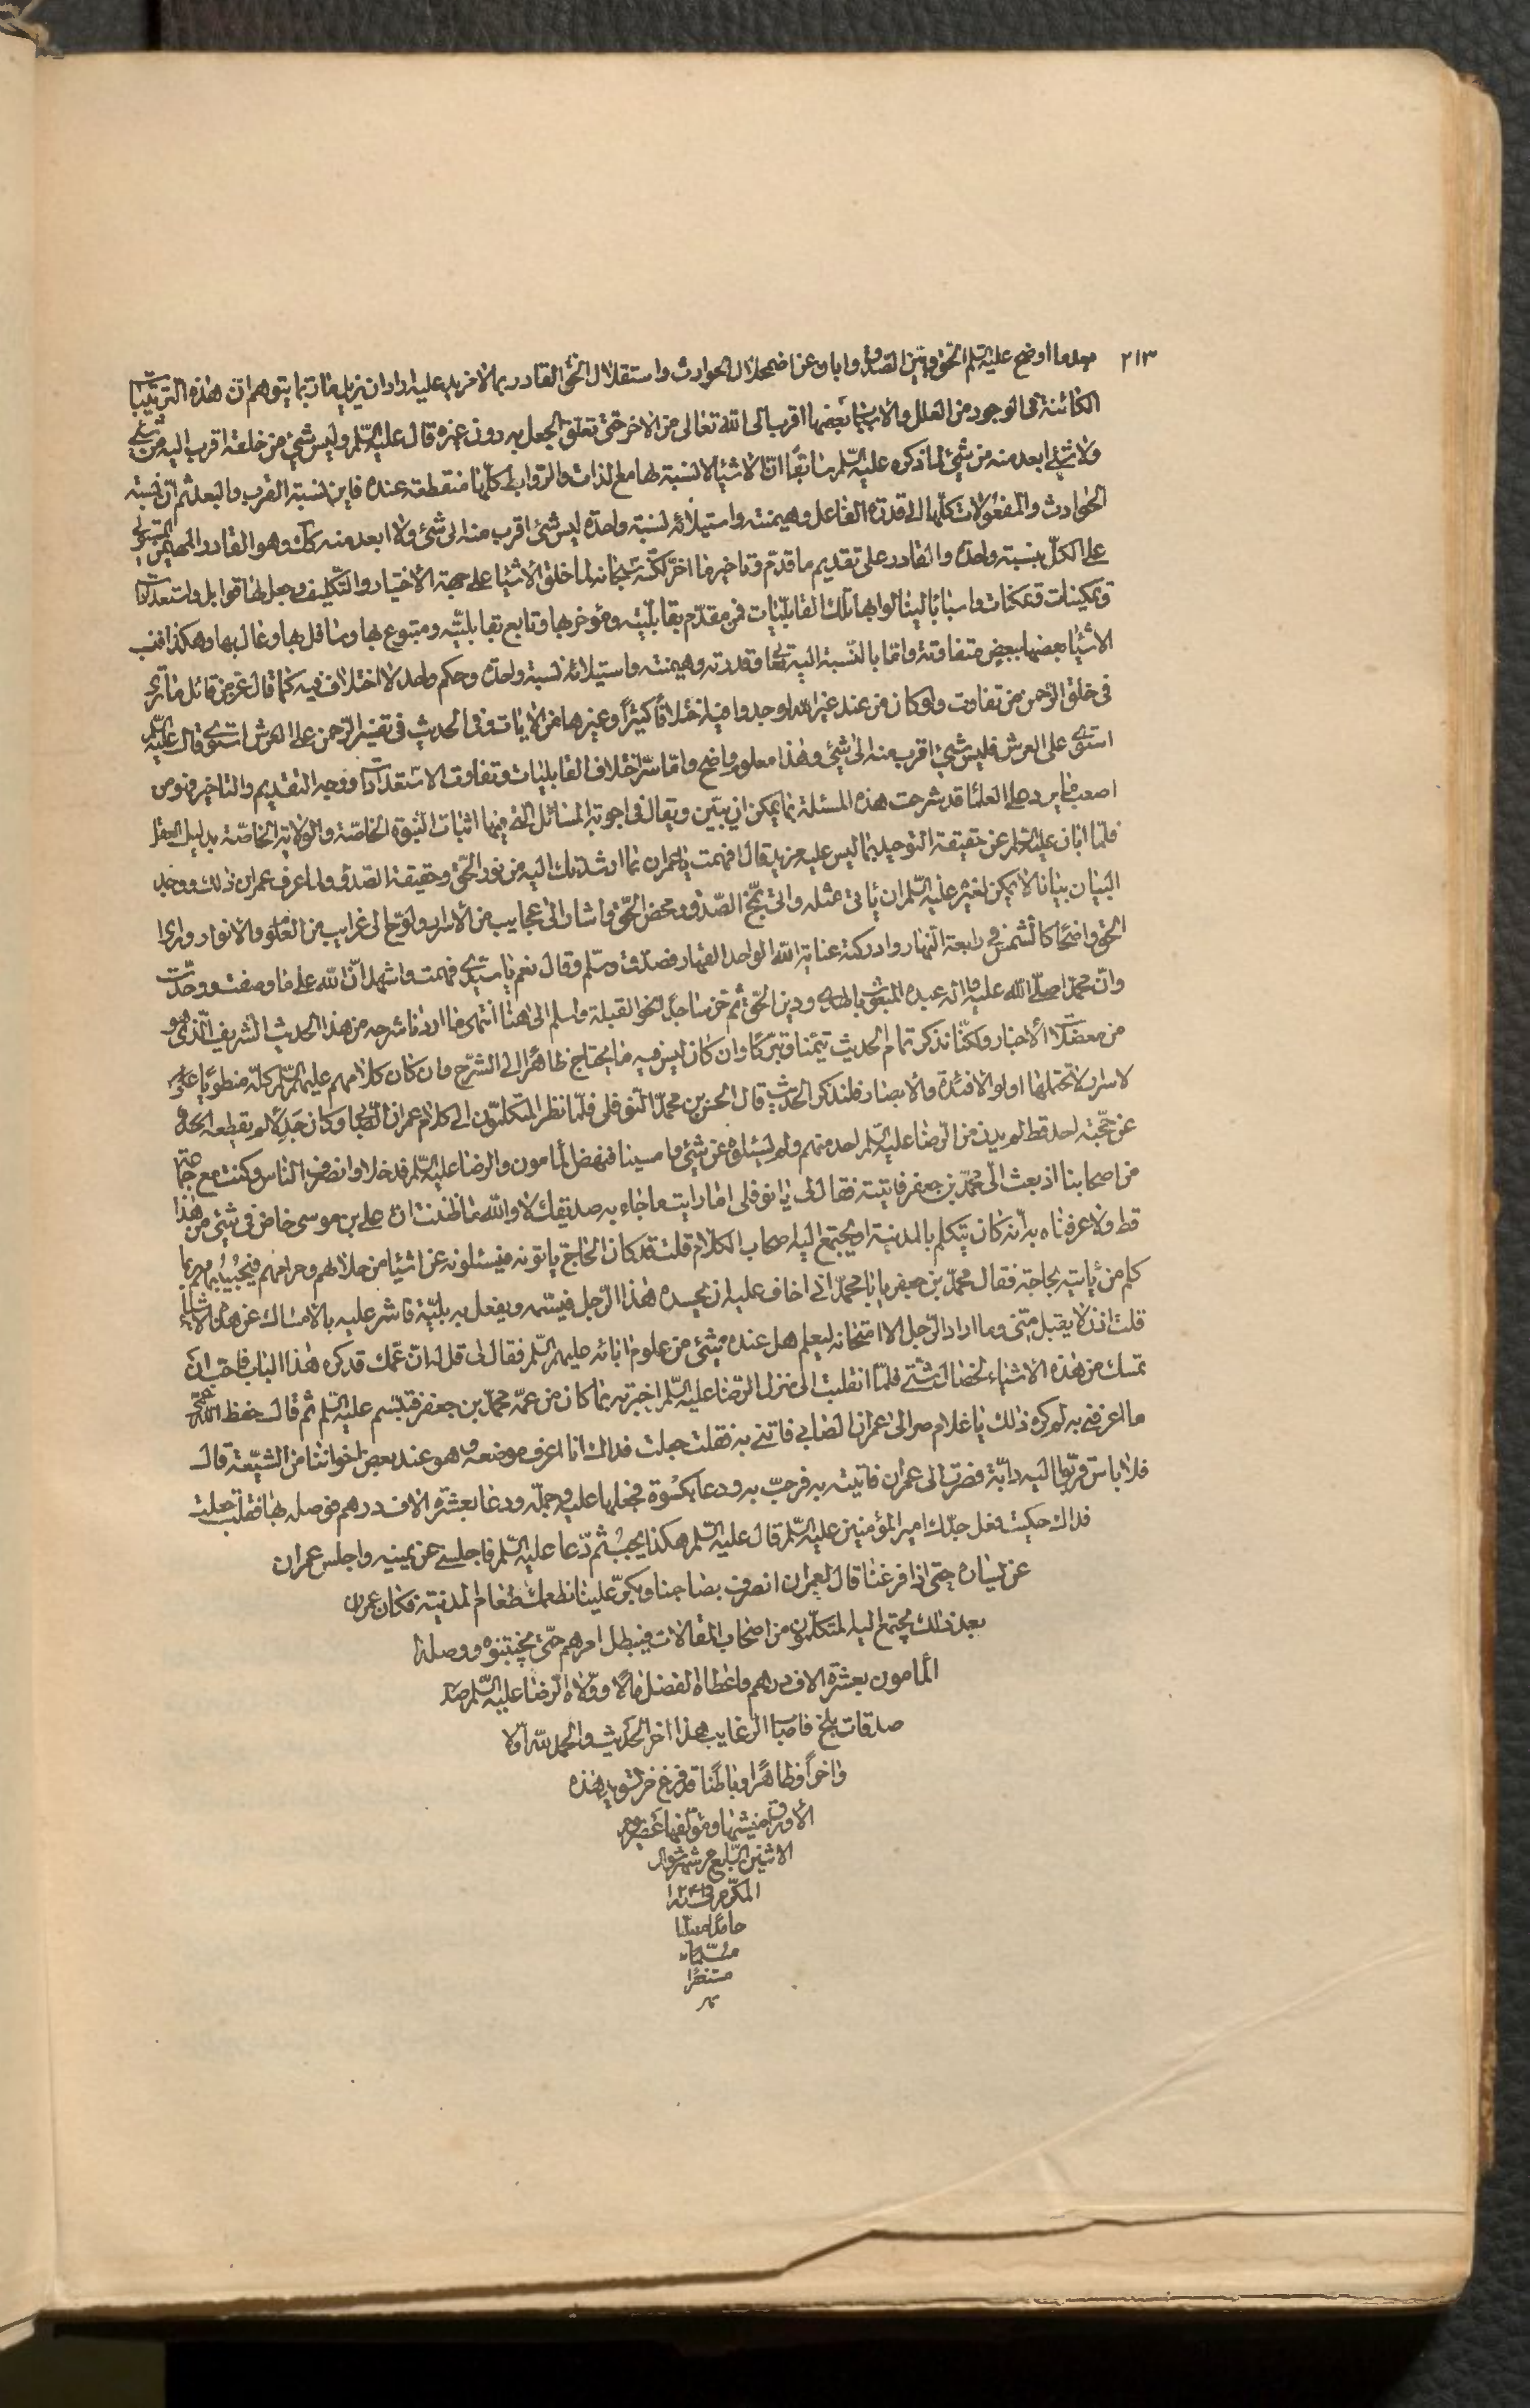 ٢١٣
بعد ما اوضح عليه السلم الحق وبين الصدق وابان عن اضمحلال الحوادث واستقلال الحق القادر بما لا مزيد عليه اراد ان يزيل ما ربما يتوهم ان هذه الترتيبات
الكائنة فى الوجود من العلل والاسباب بعضها اقرب الى الله تعالى من الاخر حتى تعلق الجعل به دون غيره قال عليه السلم وليس شئ من خلقه اقرب اليه من شئ
ولا شئ ابعد منه من شئ لما ذكره عليه السلم سابقًا ان الاشياء لا نسبة لها مع الذات والروابط كلها منقطعة عنده فاين نسبة القرب والبعد ثم ان نسبة
الحوادث والمفعولات كلها الى قدرة الفاعل وهيمنته واستيلائه نسبة واحدة ليس شئ اقرب منه الى شئ ولا ابعد منه كك وهو القادر المهيمن المستولى
على الكل بنسبة واحدة والقادر على تقديم ما قدم وتاخير ما اخر لكنه سبحانه لما خلق الاشياء على جهة الاختيار والتكليف وجعل لها قوابل واستعدادات
وتمكينات وتمكنات واسبابًا لينالوا بها تلك القابليات فمن مقدم بقابليته ومؤخر بها وتابع بقابليته ومتبوع بها وسافل بها وعال بها وهكذا فنسب
الاشياء بعضها ببعض متفاوتة واما بالنسبة اليه تعالى وقدرته وهيمنته واستيلائه نسبة واحدة وحكم واحد لا اختلاف فيه كما قال عز من قائل ما ترى
فى خلق الرحمن من تفاوت ولو كان من عند غير الله لوجدوا فيه اختلافًا كثيرًا وغيرها من الايات وفى الحديث فى تفسير الرحمن على العرش استوى قال عليه السلم
استوى على العرش فليس شئ اقرب منه الى شئ وهذا معلوم واضح واما سر اختلاف القابليات وتفاوت الاستعدادات ووجه التقديم والتاخير فهو من
اصعب ما يرد على العلماء قد شرحت هذه المسئلة بما يمكن ان يبين ويقال فى اجوبة المسائل التى فيها اثبات النبوة الخاصة والولاية الخاصة بدليل العقل
فلما ابان عليه السلم عن حقيقة التوحيد بما ليس عليه مزيد قال افهمت يا عمران بما ارشدتك اليه من نور الحق وحقيقة الصدق ولما عرف عمران ذلك ووجد
البيان بيانا لا يمكن لغيره عليه السلم ان ياتى بمثله والى بمخ الصدق ومحض الحق واشار الى عجايب من الاسرار ولوح الى غرايب من العلوم والانوار ورأى
الحق واضحًا كالشمس فى رابعة النهار وادركته عناية الله الواحد القهار فصدق وسلم وقال نعم يا سيدى فهمت واشهد ان الله على ما وصفت ووحدت
وان محمدًا صلى الله عليه واله عبده المبعوث بالهدى ودين الحق ثم خر ساجدًا نحو القبلة واسلم الى هنا انتهى ما اردنا شرحه من هذا الحديث الشريف الذى هو
من معضلات الاخبار ولكننا نذكر تمام الحديث تيمنا وتبركًا وان كان ليس فيه ما يحتاج ظاهرًا الى الشرح وان كان كلامهم عليهم السلم كله منطويًا على
لاسرار لا تحتملها اولوا الافئدة والابصار فلنذكر الحديث قال الحسن بن محمد النوفلى فلما نظر المتكلمون الى كلام عمران الصابى وكان جدلًا لم يقطعه احد
عن حجته احد قط لم يدن من الرضا عليه السلم احد منهم ولم يسئلوه عن شئ وامسينا فنهض المأمون والرضا عليه السلم فدخلا وانصرف الناس وكنت مع جماعة
من اصحابنا اذ بعث الى محمد بن جعفر فاتيته فقال لى يا نوفلى اما رايت ما جاء به صديقك لا والله ما ظننت ان على بن موسى خاض فى شئ من هذا
قط ولا عرفناه به انه كان يتكلم بالمدينة او يجتمع اليه اصحاب الكلام قلت قد كان الحاج ياتونه فيسئلونه عن اشياء من حلالهم وحرامهم فيجيبهم وربما
كلم من ياتيه بحاجة فقال محمد بن جعفر يا ابا محمد انى اخاف عليه ان يحسده هذا الرجل فيسمه ويفعل به بلية فاشر عليه بالامساك عن هذه الاشياء
قلت اذن لا يقبل منى وما اراد الرجل الا امتحانه ليعلم هل عنده شئ من علوم ابائه عليهم السلم فقال لى قل له ان عمك قد كره هذا الباب فاحب ان
تمسك من هذه الاشياء لخصال شتى فلما انقلبت الى منزل الرضا عليه السلم اخبرته بما كان من عمه محمد بن جعفر فتبسم عليه السلم ثم قال حفظ الله عمى
ما اعرفنى به لم كره ذلك يا غلام صر الى عمران الصابى فاتنى به فقلت جعلت فداك انا اعرف موضعه هو عند بعض اخواننا من الشيعة قال
فلا باس قربوا اليه دابة فصرت الى عمران فاتيته به فرحب به ودعا بكسوة فخلعها عليه وحمله ودعا بعشرة الاف درهم فوصله بها فقلت جعلت
فداك حكيت فعل جدك امير المؤمنين عليه السلم قال عليه السلم هكذا يجب ثم دعا عليه السلم فاجلسنى عن يمينه واجلس عمران
عن يساره حتى اذا فرغنا قال لعمران انصرف مصاحبا وبكر علينا نطعمك طعام المدينة فكان عمران
بعد ذلك يجتمع اليه المتكلمون من اصحاب المقالات فيبطل امرهم حتى يجتنبوه ووصله
المأمون بعشرة الاف درهم واعطاه الفضل مالًا وولاه الرضا عليه السلم
صدقات بلخ فاصاب الرغايب هذا اخر الحديث والحمد لله اولا
واخرًا وظاهرًا وباطنًا قد فرغ من تسويد هذه
الاوراق منشيها ومؤلفها عصر يوم
الاثنين السابع من شهر شوال
المكرم فى سنة
حامدًا مصليا
مسلمًا
مستغفرًا
تم